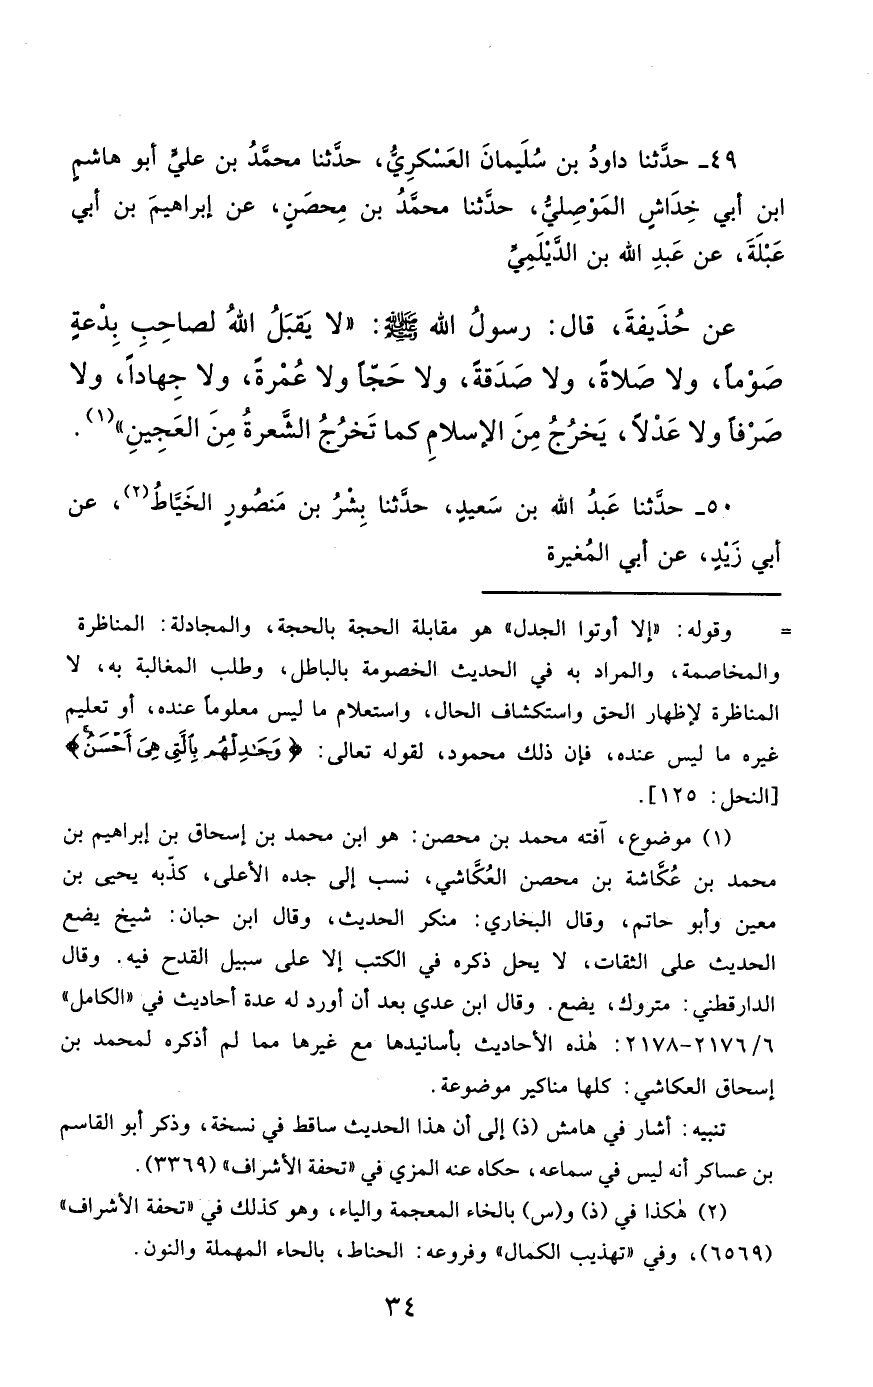 ٤٩ـ حدَّثنا داودُ بن سُلَيمانَ العَسْكرِيُّ، حدَّثنا محمَّدُ بن عليٍّ أبو هاشمٍ
ابن أبي خِدَاشٍ المَوْصِليُّ، حدَّثنا محمَّدُ بن مِحصَنٍ، عن إبراهيمَ بن أبي
عَبْلَةَ، عن عَبدِ الله بن الدَّيْلَمِيِّ
عن حُذَيفةَ، قال: رسولُ الله ﷺ: «لا يَقبَلُ اللهُ لصاحِبِ بِدْعةٍ
صَوْماً، ولا صَلاةً، ولا صَدَقةً، ولا حَجّاً ولا عُمْرةً، ولا جِهاداً، ولا
صَرْفاً ولا عَدْلاً، يَخرُجُ مِنَ الإسلامِ كما تَخرُجُ الشَّعرةُ مِنَ العَجِينِ»(١).
٥٠ـ حدَّثنا عَبدُ الله بن سَعيدٍ، حدَّثنا بِشْرُ بن مَنصُورٍ الخَيَّاطُ(٢)، عن
أبي زَيْدٍ، عن أبي المُغيرة
= وقوله: «إلا أوتوا الجدل» هو مقابلة الحجة بالحجة، والمجادلة: المناظرة
والمخاصمة، والمراد به في الحديث الخصومة بالباطل، وطلب المغالبة به، لا
المناظرة لإظهار الحق واستكشاف الحال، واستعلام ما ليس معلوماً عنده، أو تعليم
غيره ما ليس عنده، فإن ذلك محمود، لقوله تعالى: ﴿وَجَٰدِلْهُم بِٱلَّتِى هِىَ أَحْسَنُ﴾
[النحل: ١٢٥].
(١) موضوع، آفته محمد بن محصن: هو ابن محمد بن إسحاق بن إبراهيم بن
محمد بن عُكَّاشة بن محصن العُكَّاشي، نسب إلى جده الأعلى، كذّبه يحيى بن
معين وأبو حاتم، وقال البخاري: منكر الحديث، وقال ابن حبان: شيخ يضع
الحديث على الثقات، لا يحل ذكره في الكتب إلا على سبيل القدح فيه. وقال
الدارقطني: متروك، يضع. وقال ابن عدي بعد أن أورد له عدة أحاديث في «الكامل»
٦/ ٢١٧٦-٢١٧٨: هٰذه الأحاديث بأسانيدها مع غيرها مما لم أذكره لمحمد بن
إسحاق العكاشي: كلها مناكير موضوعة.
تنبيه: أشار في هامش (ذ) إلى أن هذا الحديث ساقط في نسخة، وذكر أبو القاسم
بن عساكر أنه ليس في سماعه، حكاه عنه المزي في «تحفة الأشراف» (٣٣٦٩).
(٢) هٰكذا في (ذ) و(س) بالخاء المعجمة والياء، وهو كذلك في «تحفة الأشراف»
(٦٥٦٩)، وفي «تهذيب الكمال» وفروعه: الحناط، بالحاء المهملة والنون.
٣٤